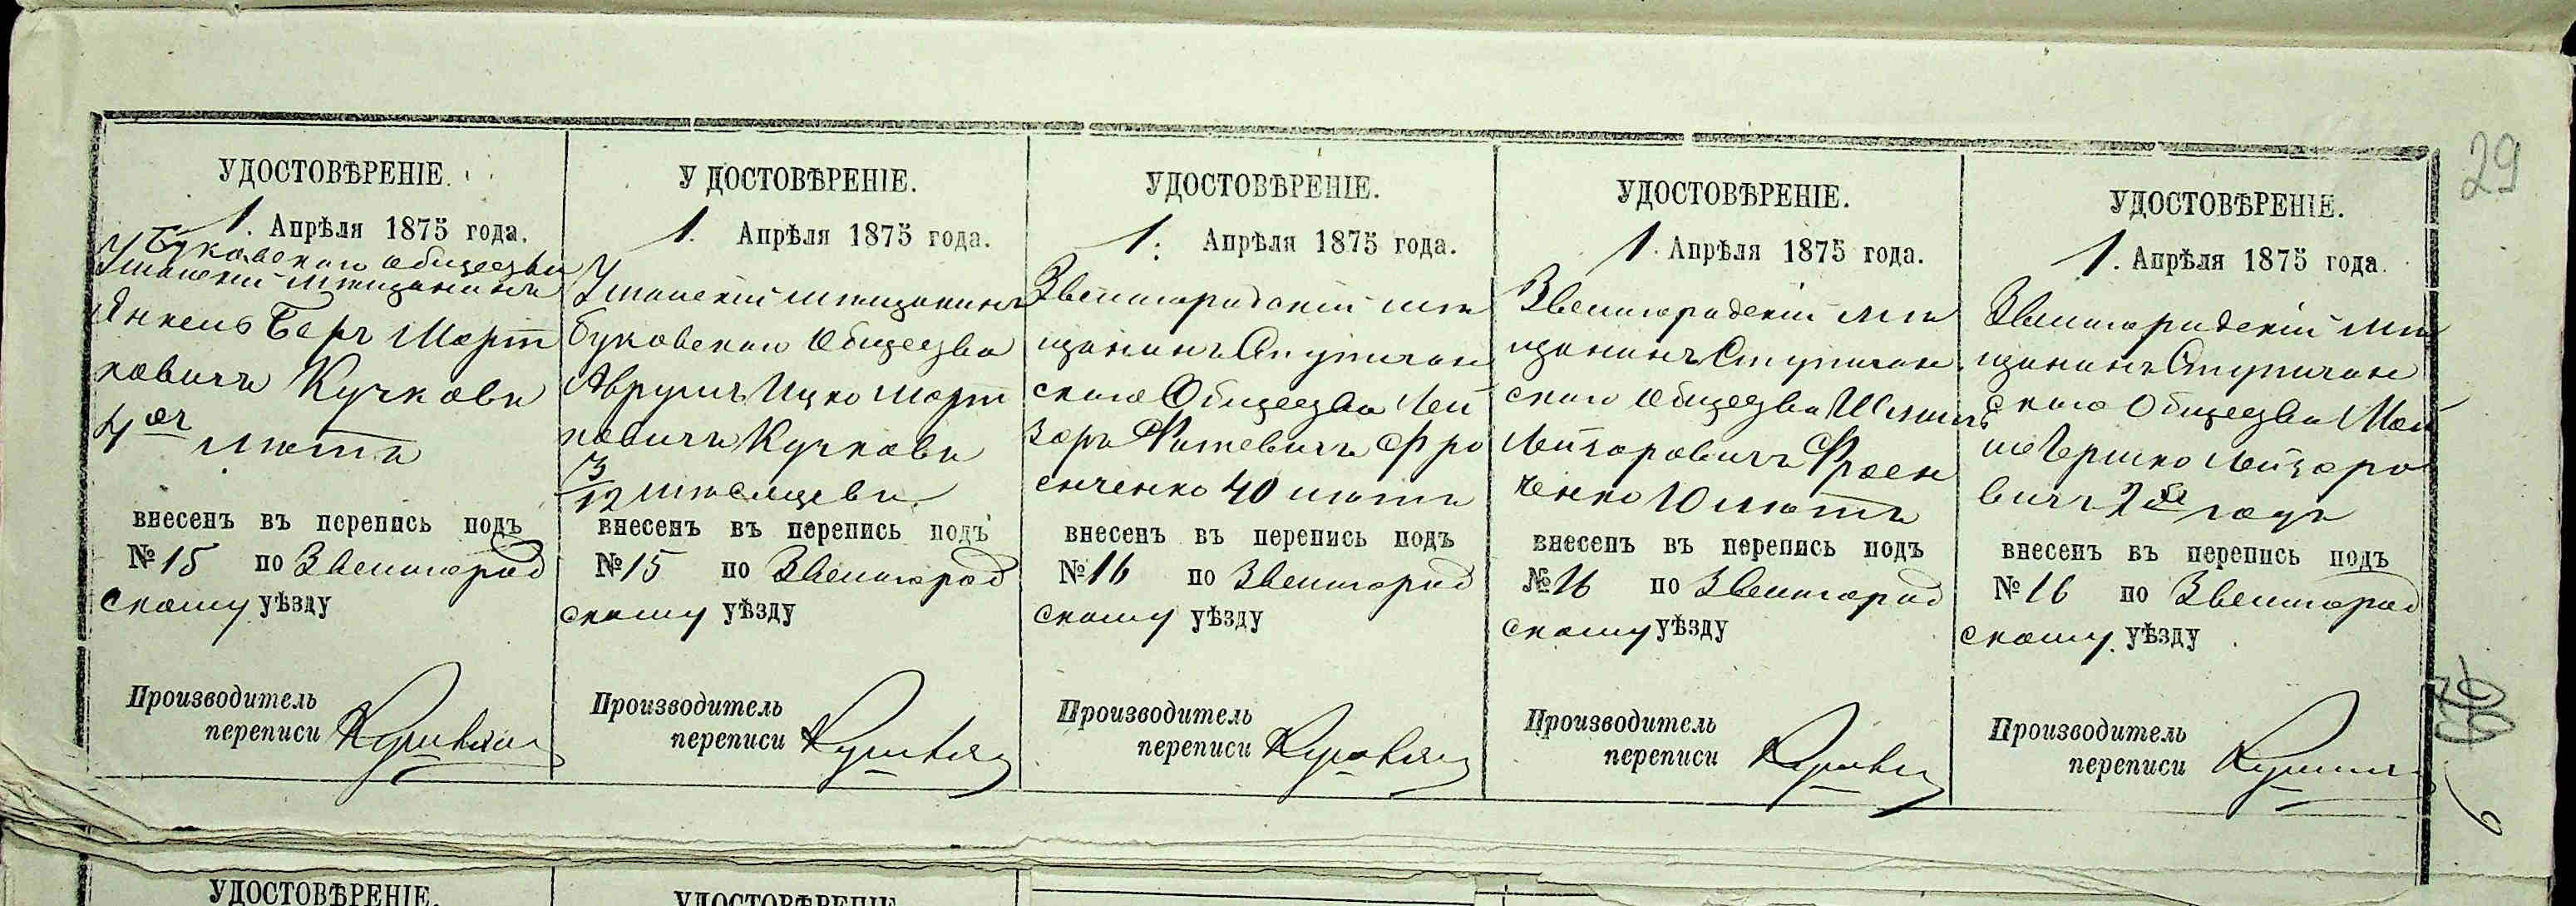 29
УДОСТОВѢРЕНІЕ.
1. Апрѣля 1875 года.
Буковскаго общества
Уманскій мѣщанинъ
Янкель Беръ Морт
ковичъ Кучкові
4ох лѣтъ
внесенъ въ перепись подъ
№ 15 по Звенигород
скому уѣзду
Производитель
переписи
У ДОСТОВѢРЕНІЕ.
1. Апрѣля 1875 года.
Уманскій мѣщанинъ
Буковскаго Общества
Аврумъ Ицко Морт
ковичъ Кучкові
3/12 мѣсяцеві
внесенъ въ перепись подъ
№ 15 по Звенигород
скому уѣзду
Производитель
переписи
УДОСТОВѢРЕНІЕ.
1. Апрѣля 1875 года.
Звенигородскій мѣ
щанинъ
скаго Общества Лей
зоръ Фро
енченко 40 лѣтъ
внесенъ въ перепись подъ
№ 16 по Звенигород
скому уѣзду
Производитель
переписи
УДОСТОВѢРЕНІЕ.
1. Апрѣля 1875 года.
Звенигородскій мѣ
щанинъ
скаго Общества
Лейзоровичъ Фроен
ченко 10 лѣтъ
внесенъ въ перепись подъ
№ 16 по Звенигород
скому уѣзду
Производитель
переписи
УДОСТОВѢРЕНІЕ.
1. Апрѣля 1875 года.
Звенигородскій мѣ
щанинъ
скаго Общества Мой
ше Гершко Лейзоро
вичъ годъ
внесенъ въ перепись подъ
№ 16 по Звенигород
скому уѣзду
Производитель
переписи
УДОСТОВѢРЕНІЕ.
УДОСТОВѢРЕНІЕ